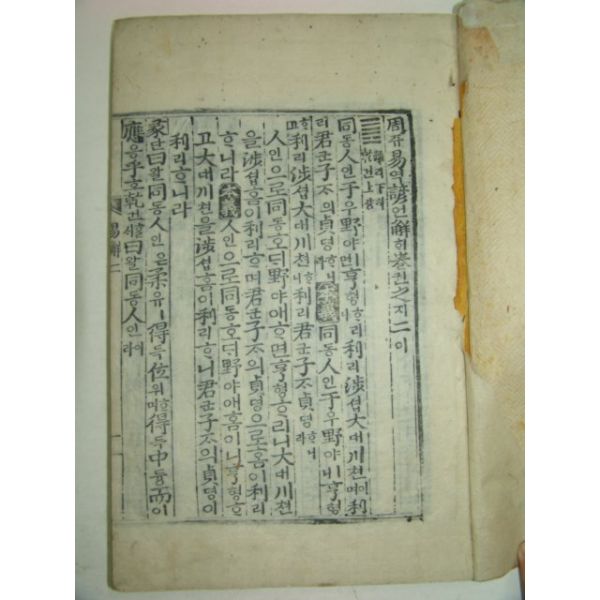 周쥬易역諺언解ᄒᆡ卷권之지二이
離리下하
乾건上샹
同동人인于우野야ㅣ면亨형ᄒᆞ리니利리涉셥大대川쳔이며利리
君군子ᄌᆞ의貞뎡ᄒᆞ니라 本義 同동人인于우野야ㅣ니亨형
ᄒᆞ고利리涉셥大대川쳔ᄒᆞ니利리君군子ᄌᆞ貞뎡ᄒᆞ니라
人인으로同동호ᄃᆡ野야애ᄒᆞ면亨형ᄒᆞ리니大대川쳔
을涉셥홈이利리ᄒᆞ며君군子ᄌᆞ의貞뎡으로홈이利리
ᄒᆞ니라 本義 人인으로同동호ᄃᆡ野야애홈이니亨형ᄒᆞ
고大대川쳔을涉셥홈이利리ᄒᆞ니君군子ᄌᆞ의貞뎡이
利리ᄒᆞ니라
彖단曰왈同동人인은柔유ㅣ得득位위ᄒᆞ며得득中듕而이
應응乎호乾건ᄒᆞᆯᄉᆡ曰왈同동人인이라
易解二